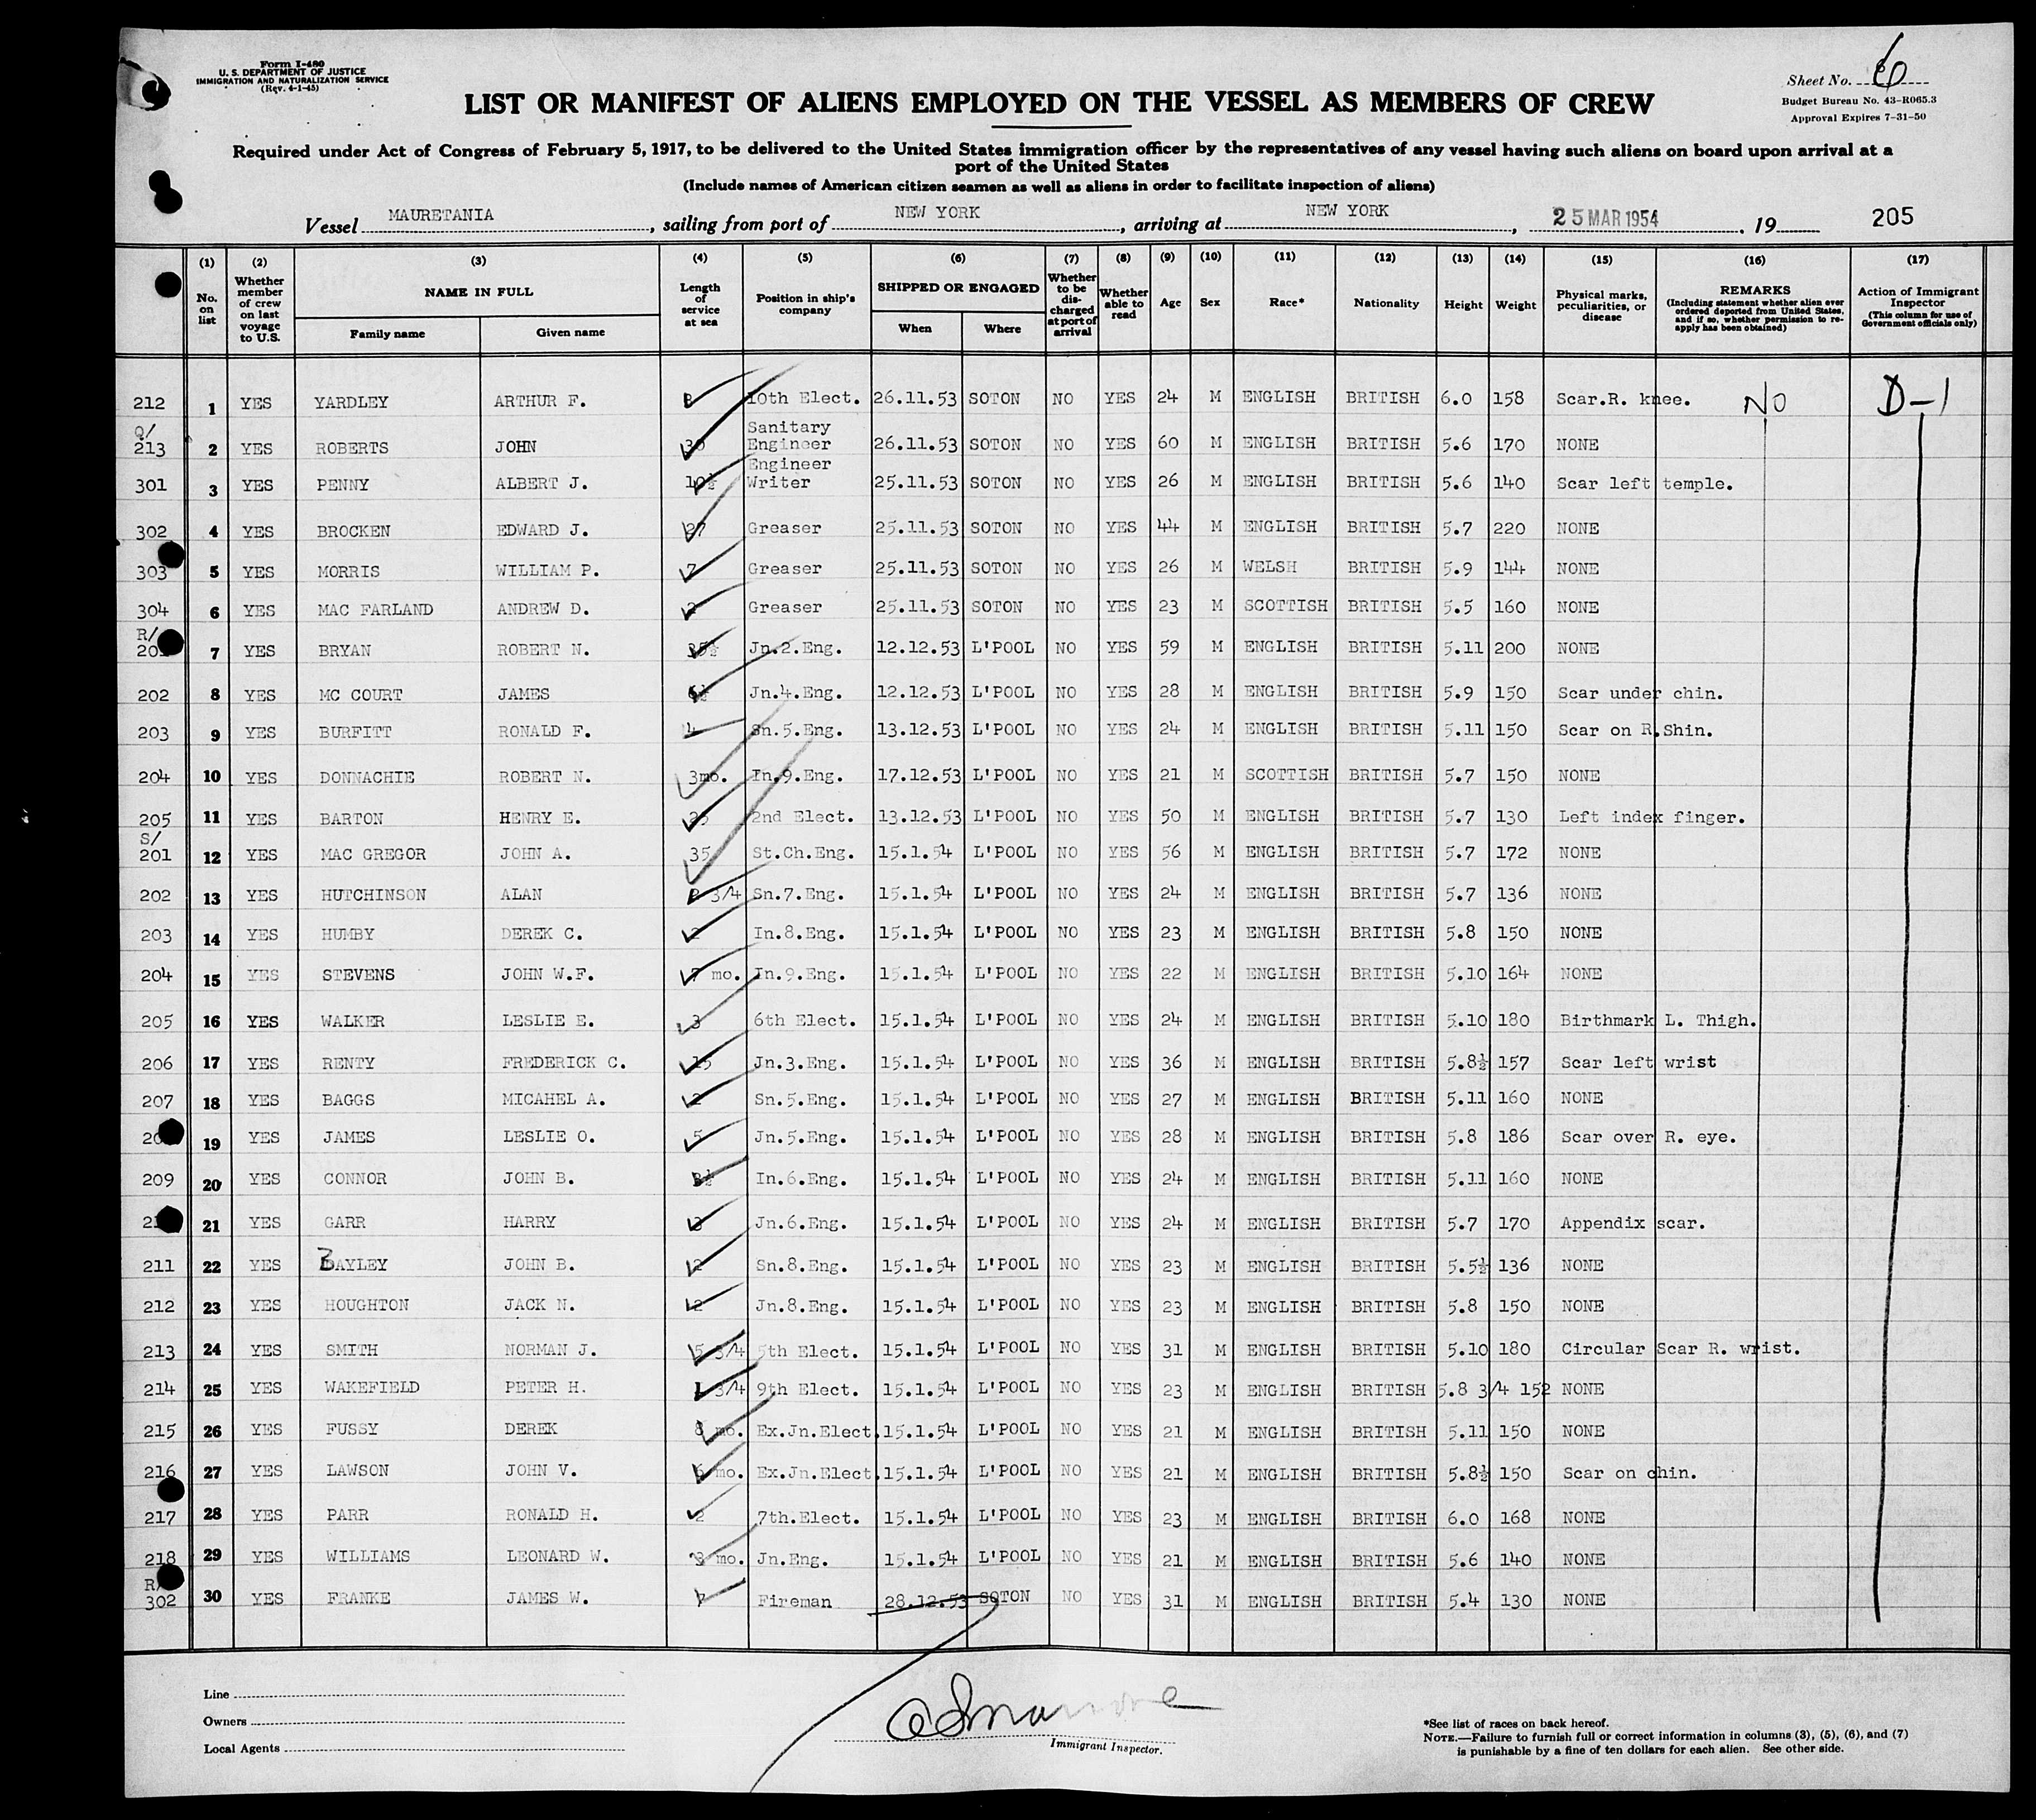 Form I-480
U. S. DEPARTMENT OF JUSTICE
IMMIGRATION AND NATURALIZATION SERVICE
(Rev. 4-1-45)
Sheet No.
Budget Bureau No. 43-R065.3
Approval Expires 7-31-50
LIST OR MANIFEST OF ALIENS EMPLOYED ON THE VESSEL AS MEMBERS OF CREW
Required under Act of Congress of February 5, 1917, to be delivered to the United States immigration officer by the representatives of any vessel having such aliens on board upon arrival at a
port of the United States
(Include names of American citizen seamen as well as aliens in order to facilitate inspection of aliens)
Vessel MAURETANIA, sailing from port of NEW YORK, arriving at NEW YORK, 25 MAR 1954. 19 205
(1) No. on list
(2) Whether member of crew on last voyage to U.S.
(3) NAME IN FULL Family name Given name
(4) Length of service at sea
(5) Position in ship's company
(6) SHIPPED OR ENGAGED When Where
(7) Whether to be discharged at port of arrival
(8) Whether able to read
(9) Age
(10) Sex
(11) Race*
(12) Nationality
(13) Height
(14) Weight
(15) Physical marks, peculiarities, or disease
(16) REMARKS (Including statement whether alien ever ordered deported from United States, and if so, whether permission to re-apply has been obtained)
(17) Action of Immigrant Inspector (This column for use of Government officials only)
212 1 YES YARDLEY ARTHUR F. 10th Elect. 26.11.53 SOTON NO YES 24 M ENGLISH BRITISH 6.0 158 Scar.R. knee. NO D-1
Q/ 213 2 YES ROBERTS JOHN 30 Sanitary Engineer 26.11.53 SOTON NO YES 60 M ENGLISH BRITISH 5.6 170 NONE
301 3 YES PENNY ALBERT J. 10½ Engineer Writer 25.11.53 SOTON NO YES 26 M ENGLISH BRITISH 5.6 140 Scar left temple.
302 4 YES BROCKEN EDWARD J. 27 Greaser 25.11.53 SOTON NO YES 44 M ENGLISH BRITISH 5.7 220 NONE
303 5 YES MORRIS WILLIAM P. 7 Greaser 25.11.53 SOTON NO YES 26 M WELSH BRITISH 5.9 144 NONE
304 6 YES MAC FARLAND ANDREW D. 2 Greaser 25.11.53 SOTON NO YES 23 M SCOTTISH BRITISH 5.5 160 NONE
R/ 7 YES BRYAN ROBERT N. 35½ Jn.2.Eng. 12.12.53 L'POOL NO YES 59 M ENGLISH BRITISH 5.11 200 NONE
202 8 YES MC COURT JAMES Jn.4.Eng. 12.12.53 L'POOL NO YES 28 M ENGLISH BRITISH 5.9 150 Scar under chin.
203 9 YES BURFITT RONALD F. 4 Sn.5.Eng. 13.12.53 L'POOL NO YES 24 M ENGLISH BRITISH 5.11 150 Scar on R.Shin.
204 10 YES DONNACHIE ROBERT N. 3mo. In.9.Eng. 17.12.53 L'POOL NO YES 21 M SCOTTISH BRITISH 5.7 150 NONE
205 11 YES BARTON HENRY E. 25 2nd Elect. 13.12.53 L'POOL NO YES 50 M ENGLISH BRITISH 5.7 130 Left index finger.
S/ 201 12 YES MAC GREGOR JOHN A. 35 St.Ch.Eng. 15.1.54 L'POOL NO YES 56 M ENGLISH BRITISH 5.7 172 NONE
202 13 YES HUTCHINSON ALAN 2 3/4 Sn.7.Eng. 15.1.54 L'POOL NO YES 24 M ENGLISH BRITISH 5.7 136 NONE
203 14 YES HUMBY DEREK C. 2 In.8.Eng. 15.1.54 L'POOL NO YES 23 M ENGLISH BRITISH 5.8 150 NONE
204 15 YES STEVENS JOHN W.F. 7 mo. In.9.Eng. 15.1.54 L'POOL NO YES 22 M ENGLISH BRITISH 5.10 164 NONE
205 16 YES WALKER LESLIE E. 3 6th Elect. 15.1.54 L'POOL NO YES 24 M ENGLISH BRITISH 5.10 180 Birthmark L. Thigh.
206 17 YES RENTY FREDERICK C. 15 Jn.3.Eng. 15.1.54 L'POOL NO YES 36 M ENGLISH BRITISH 5.8½ 157 Scar left wrist
207 18 YES BAGGS MICAHEL A. 2 Sn.5.Eng. 15.1.54 L'POOL NO YES 27 M ENGLISH BRITISH 5.11 160 NONE
19 YES JAMES LESLIE O. 5 Jn.5.Eng. 15.1.54 L'POOL NO YES 28 M ENGLISH BRITISH 5.8 186 Scar over R. eye.
209 20 YES CONNOR JOHN B. In.6.Eng. 15.1.54 L'POOL NO YES 24 M ENGLISH BRITISH 5.11 160 NONE
21 YES GARR HARRY 3 Jn.6.Eng. 15.1.54 L'POOL NO YES 24 M ENGLISH BRITISH 5.7 170 Appendix scar.
211 22 YES BAYLEY JOHN B. 2 Sn.8.Eng. 15.1.54 L'POOL NO YES 23 M ENGLISH BRITISH 5.5½ 136 NONE
212 23 YES HOUGHTON JACK N. 2 Jn.8.Eng. 15.1.54 L'POOL NO YES 23 M ENGLISH BRITISH 5.8 150 NONE
213 24 YES SMITH NORMAN J. 5 3/4 5th Elect. 15.1.54 L'POOL NO YES 31 M ENGLISH BRITISH 5.10 180 Circular Scar R. wrist.
214 25 YES WAKEFIELD PETER H. 1 3/4 9th Elect. 15.1.54 L'POOL NO YES 23 M ENGLISH BRITISH 5.8 3/4 152 NONE
215 26 YES FUSSY DEREK 8 mo. Ex.Jn.Elect. 15.1.54 L'POOL NO YES 21 M ENGLISH BRITISH 5.11 150 NONE
216 27 YES LAWSON JOHN V. 6 mo. Ex.Jn.Elect. 15.1.54 L'POOL NO YES 21 M ENGLISH BRITISH 5.8½ 150 Scar on chin.
217 28 YES PARR RONALD H. 2 7th.Elect. 15.1.54 L'POOL NO YES 23 M ENGLISH BRITISH 6.0 168 NONE
218 29 YES WILLIAMS LEONARD W. mo. Jn.Eng. 15.1.54 L'POOL NO YES 21 M ENGLISH BRITISH 5.6 140 NONE
R/ 302 30 YES FRANKE JAMES W. 7 Fireman 28.12.53 SOTON NO YES 31 M ENGLISH BRITISH 5.4 130 NONE
Line
Owners
Local Agents
Immigrant Inspector.
*See list of races on back hereof.
NOTE.—Failure to furnish full or correct information in columns (3), (5), (6), and (7)
is punishable by a fine of ten dollars for each alien. See other side.